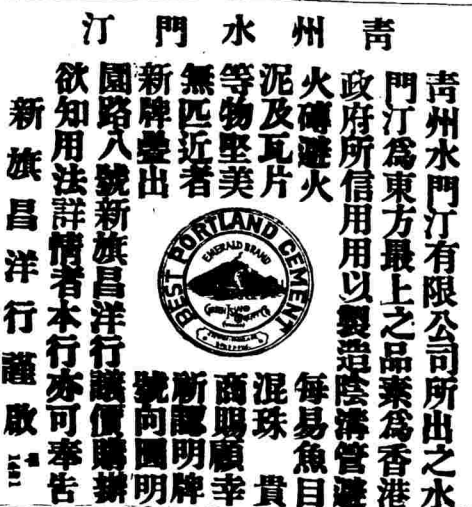 青州水門汀
青州水門汀有限公司所出之水
門汀爲東方最上之品素爲香港
政府所信用用以製造陰溝管避
火磚避火
泥及瓦片
等物堅美
無匹近者
新牌疊出
每易魚目
混珠 貴
商賜顧幸
祈認明牌
號向圓明
園路八號新旗昌洋行議價購辦
欲知用法詳情者本行亦可奉告
新旗昌洋行謹啟
1421
BEST PORTLAND CEMENT
EMERALD BRAND
GREEN ISLAND
CEMENT Co